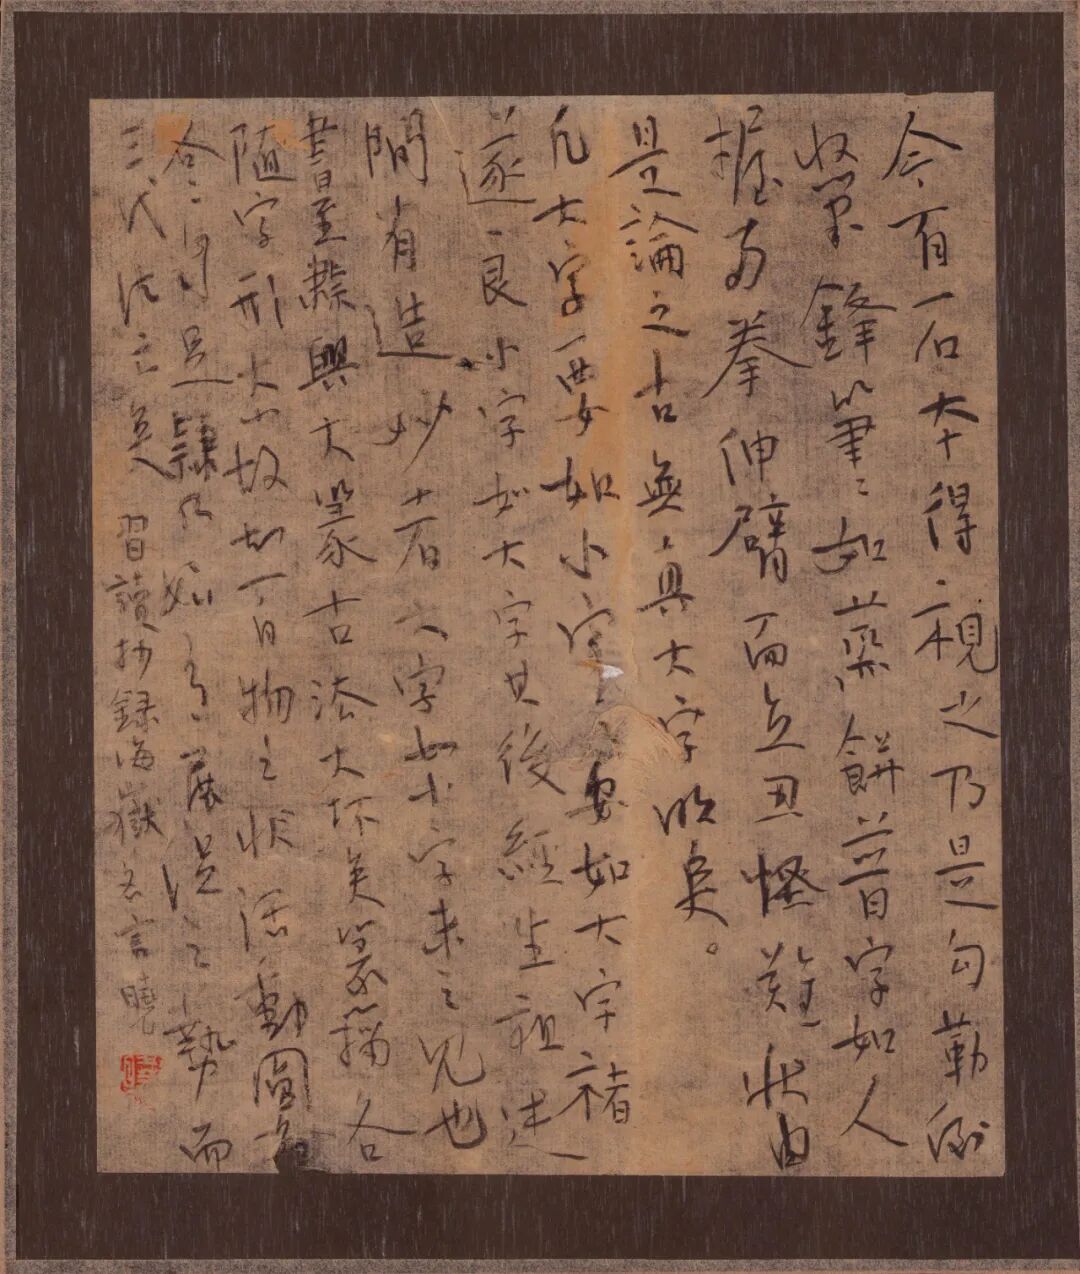 今有石本得視之乃是勾勒倒
收筆鋒筆〻如蒸餅普字如人
握兩拳伸臂而立丑怪難狀由
是論之古無真大字明矣。
凡大字要如小字〻要如大字褚
遂良小字如大字其後經生祖述
間有造妙者大字如小字未之見也
書至隸興大篆古法大坏矣篆籀各
隨字形大小故知百物之狀活動圓备
各〻自足隸乃始有展促之勢而
三代法亡矣 習讀抄錄海嶽名言曉